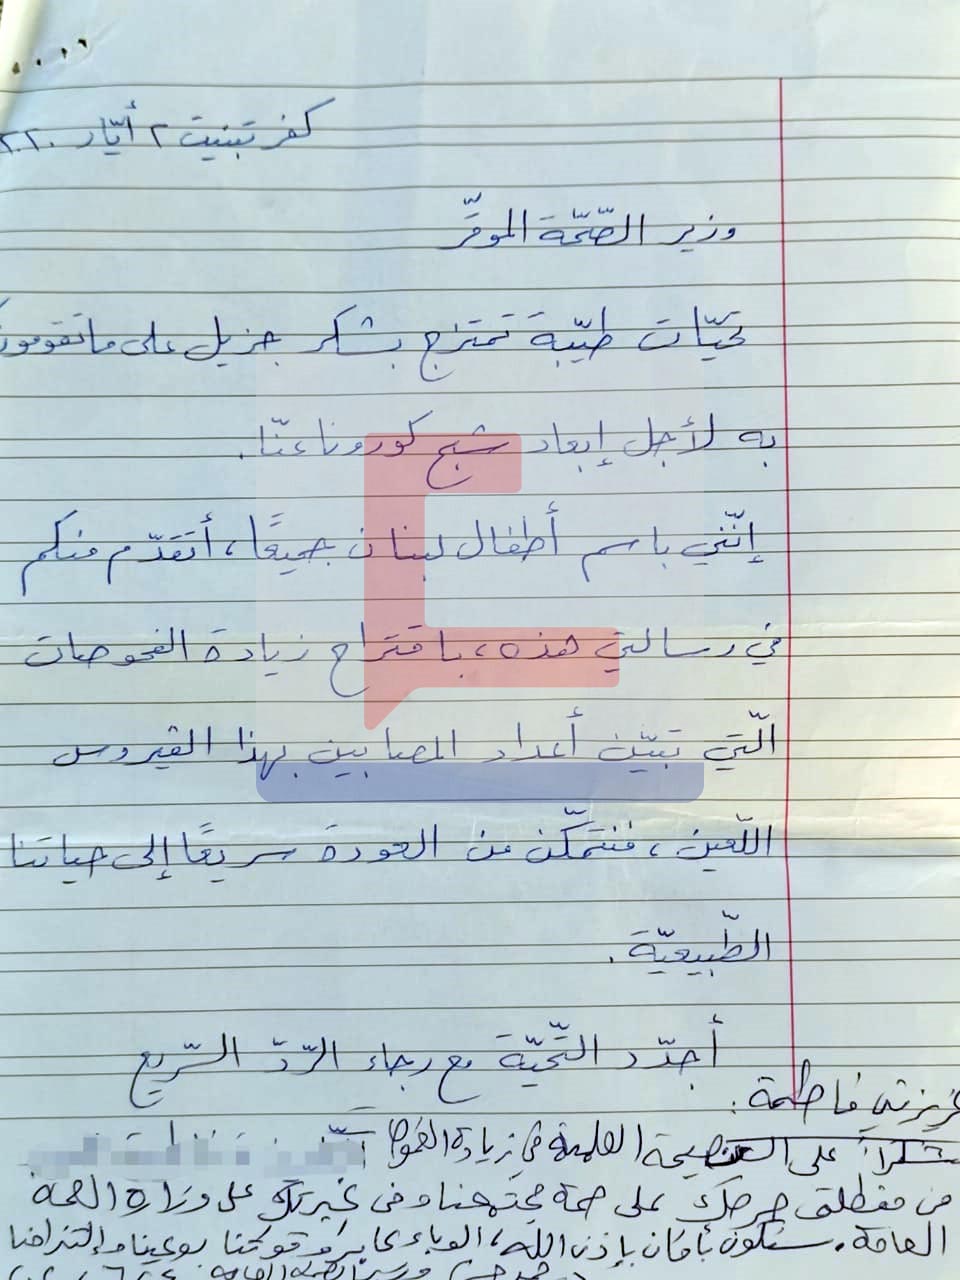 كفر تبنيت ٢ أيّار ٢٠٢٠
وزير الصّحّة الموقّر
تحيّات طيّبة تمتزج بشكر جزيل على ما تقومون
به لأجل إبعاد شبح كورونا عنّا.
إنّني باسم أطفال لبنان جميعًا، أتقدّم منكم
في رسالتي هذه، باقتراح زيادة الفحوصات
الّتي تبيّن أعداد المصابين بهذا الڤيروس
اللّعين، فنتمكّن من العودة سريعًا إلى حياتنا
الطّبيعيّة.
أجدّد التّحيّة مع رجاء الرّدّ السّريع
عزيزتي فاطمة:
شكراً على النصيحة العلمية في زيادة الفحوصا
من منطلق حرصك على صحة مجتمعنا وفي غيرتك على وزارة الصحة
العامة. سنكون بأمان بإذن الله، الوباء يحاربه وقوتنا بوعينا والتزامنا